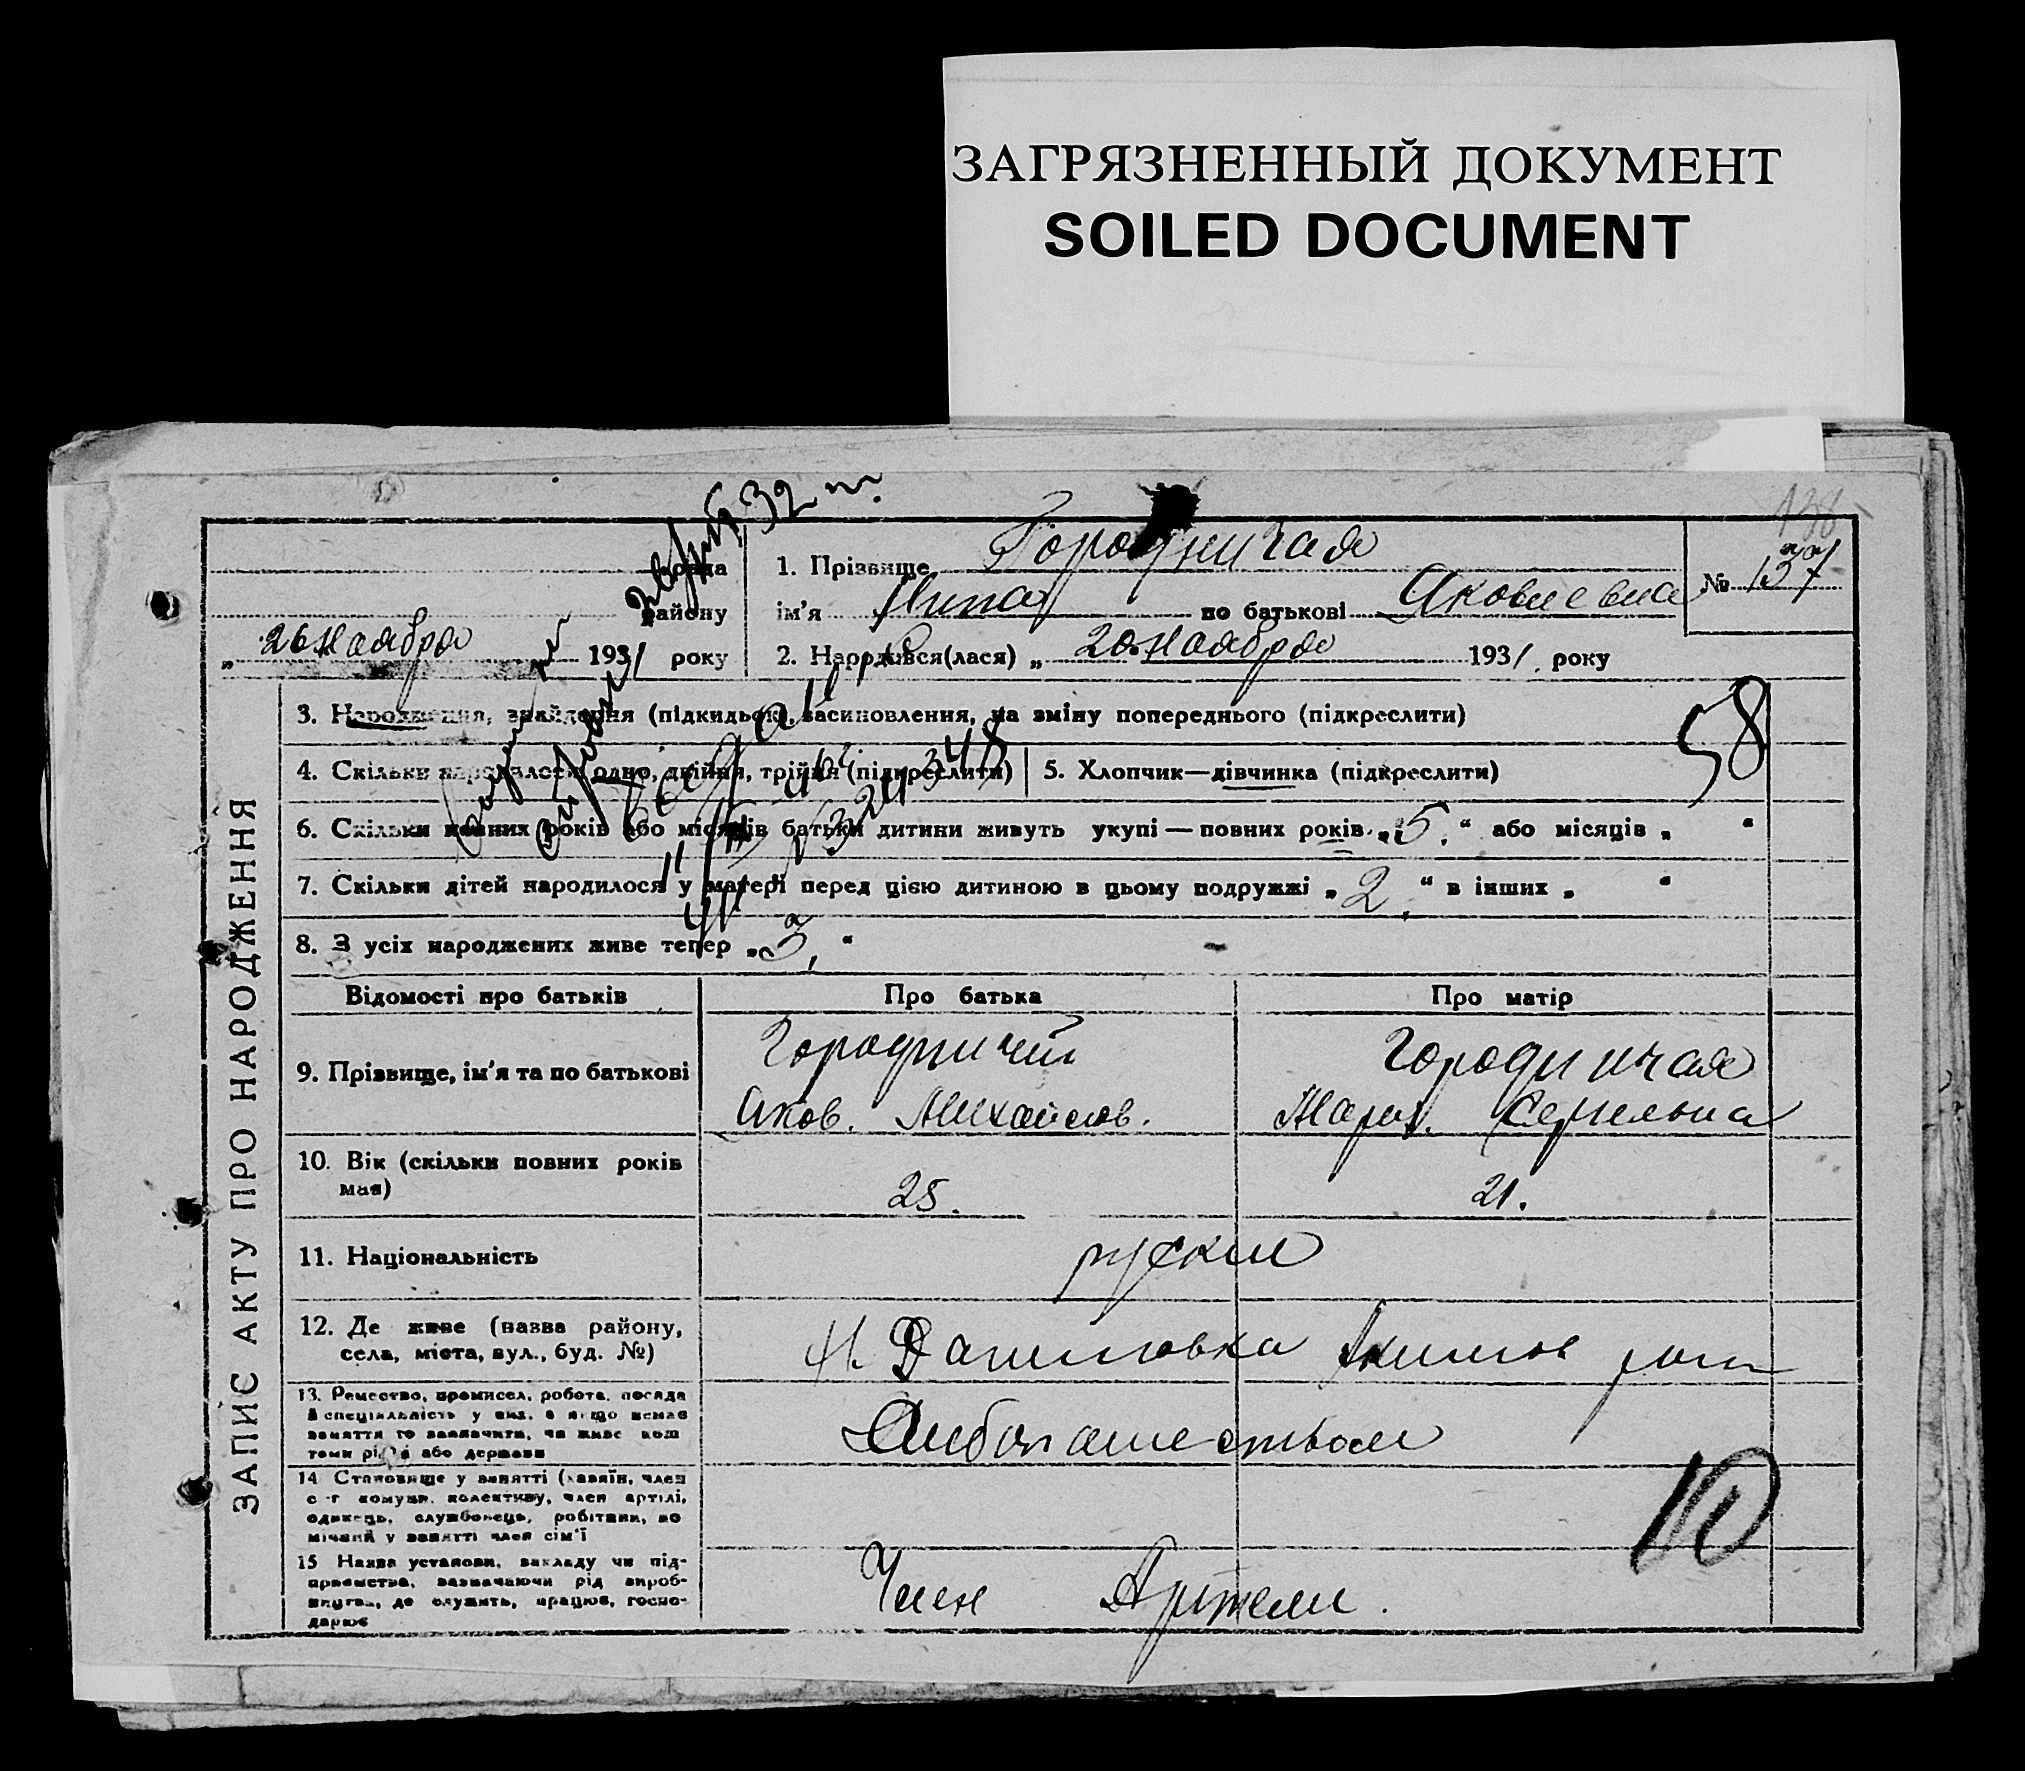 ЗАГРЯЗНЕННЫЙ ДОКУМЕНТ
SOILED DOCUMENT
138
ЗАПИС АКТУ ПРО НАРОДЖЕННЯ
района
„ 26 Ноября 1931 року
1. Прізвище Городничая
ім'я Нина по батькові Яковлевна
№ 137
2. Народився(лася) „ 20 Ноября 1931. року
3. Народження, знайдення (підкидьок), засиновлення, на зміну попереднього (підкреслити)
58
4. Скільки народилося: одно, двійня, трійня (підкреслити) 5. Хлопчик—дівчинка (підкреслити)
6. Скільки повних років або місяців батьки дитини живуть укупі — повних років „ 5. “ або місяців „ “
7. Скільки дітей народилося у матері перед цією дитиною в цьому подружжі „ 2. “ в інших „ “
8. З усіх народжених живе тепер „ 3, “
Відомості про батьків Про батька Про матір
9. Прізвище, ім'я та по батькові
Городничий Городничая
Яков. Михайлов. Мария. Сергеевна
10. Вік (скільки повних років
має)
25. 21.
11. Національність
руские
12. Де живе (назва району,
села, міста, вул., буд. №)
Н. Даниловка Акимов рай
13. Ремество, промисел, робота, посада
й спеціяльність у них, а якщо немає
заняття то зазначити, чи живе кош
теми рідні або держави
Хлебопашеством
14 Становище у занятті (хазяїн, член
с.-г комуни, колективу, член артілі,
одинець, службовець, робітник, по
мічний у занятті член сім'ї
10
15 Назва установи, закладу чи під-
приємства, зазначаючи рід вироб-
ництва, де служить, працює, госпо-
дарює
Член Артели.